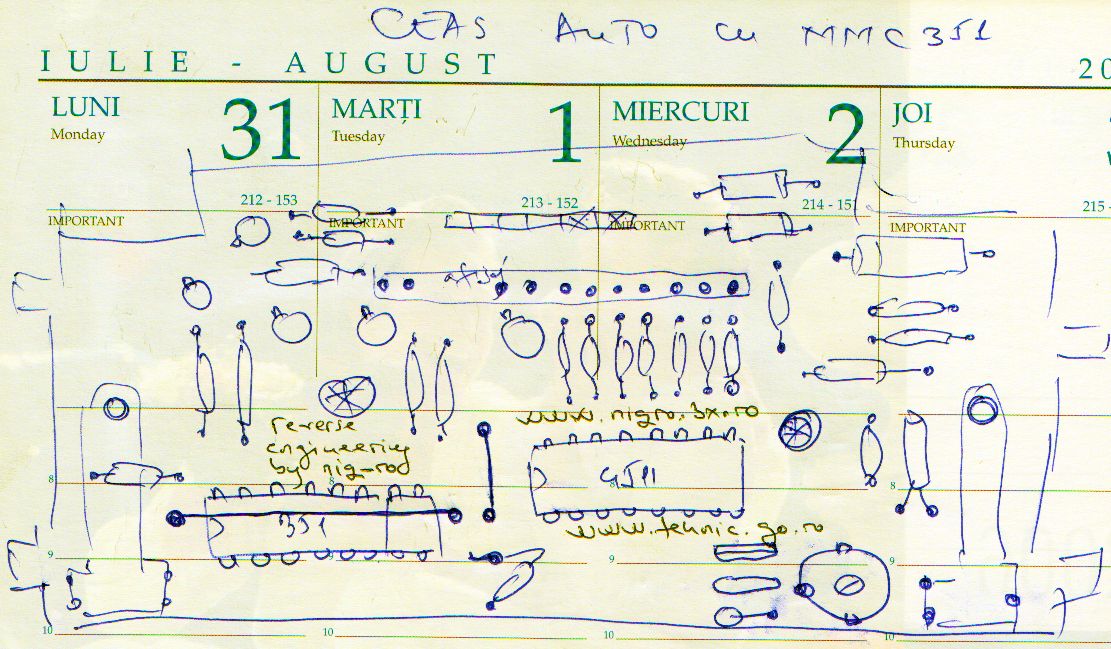 CEAS AUTO cu MMC351
IULIE - AUGUST 20
LUNI 31 MARȚI 1 MIERCURI 2 JOI
Monday Tuesday Wednesday Thursday
212 - 153 213 - 152 214 - 151 215 -
IMPORTANT IMPORTANT IMPORTANT IMPORTANT
afișaj
www.nigro.3x.ro
reverse
engineering
by nig-rod
8 8 8 8
4511
351
www.tehnic.go.ro
9 9 9 9
10 10 10 10